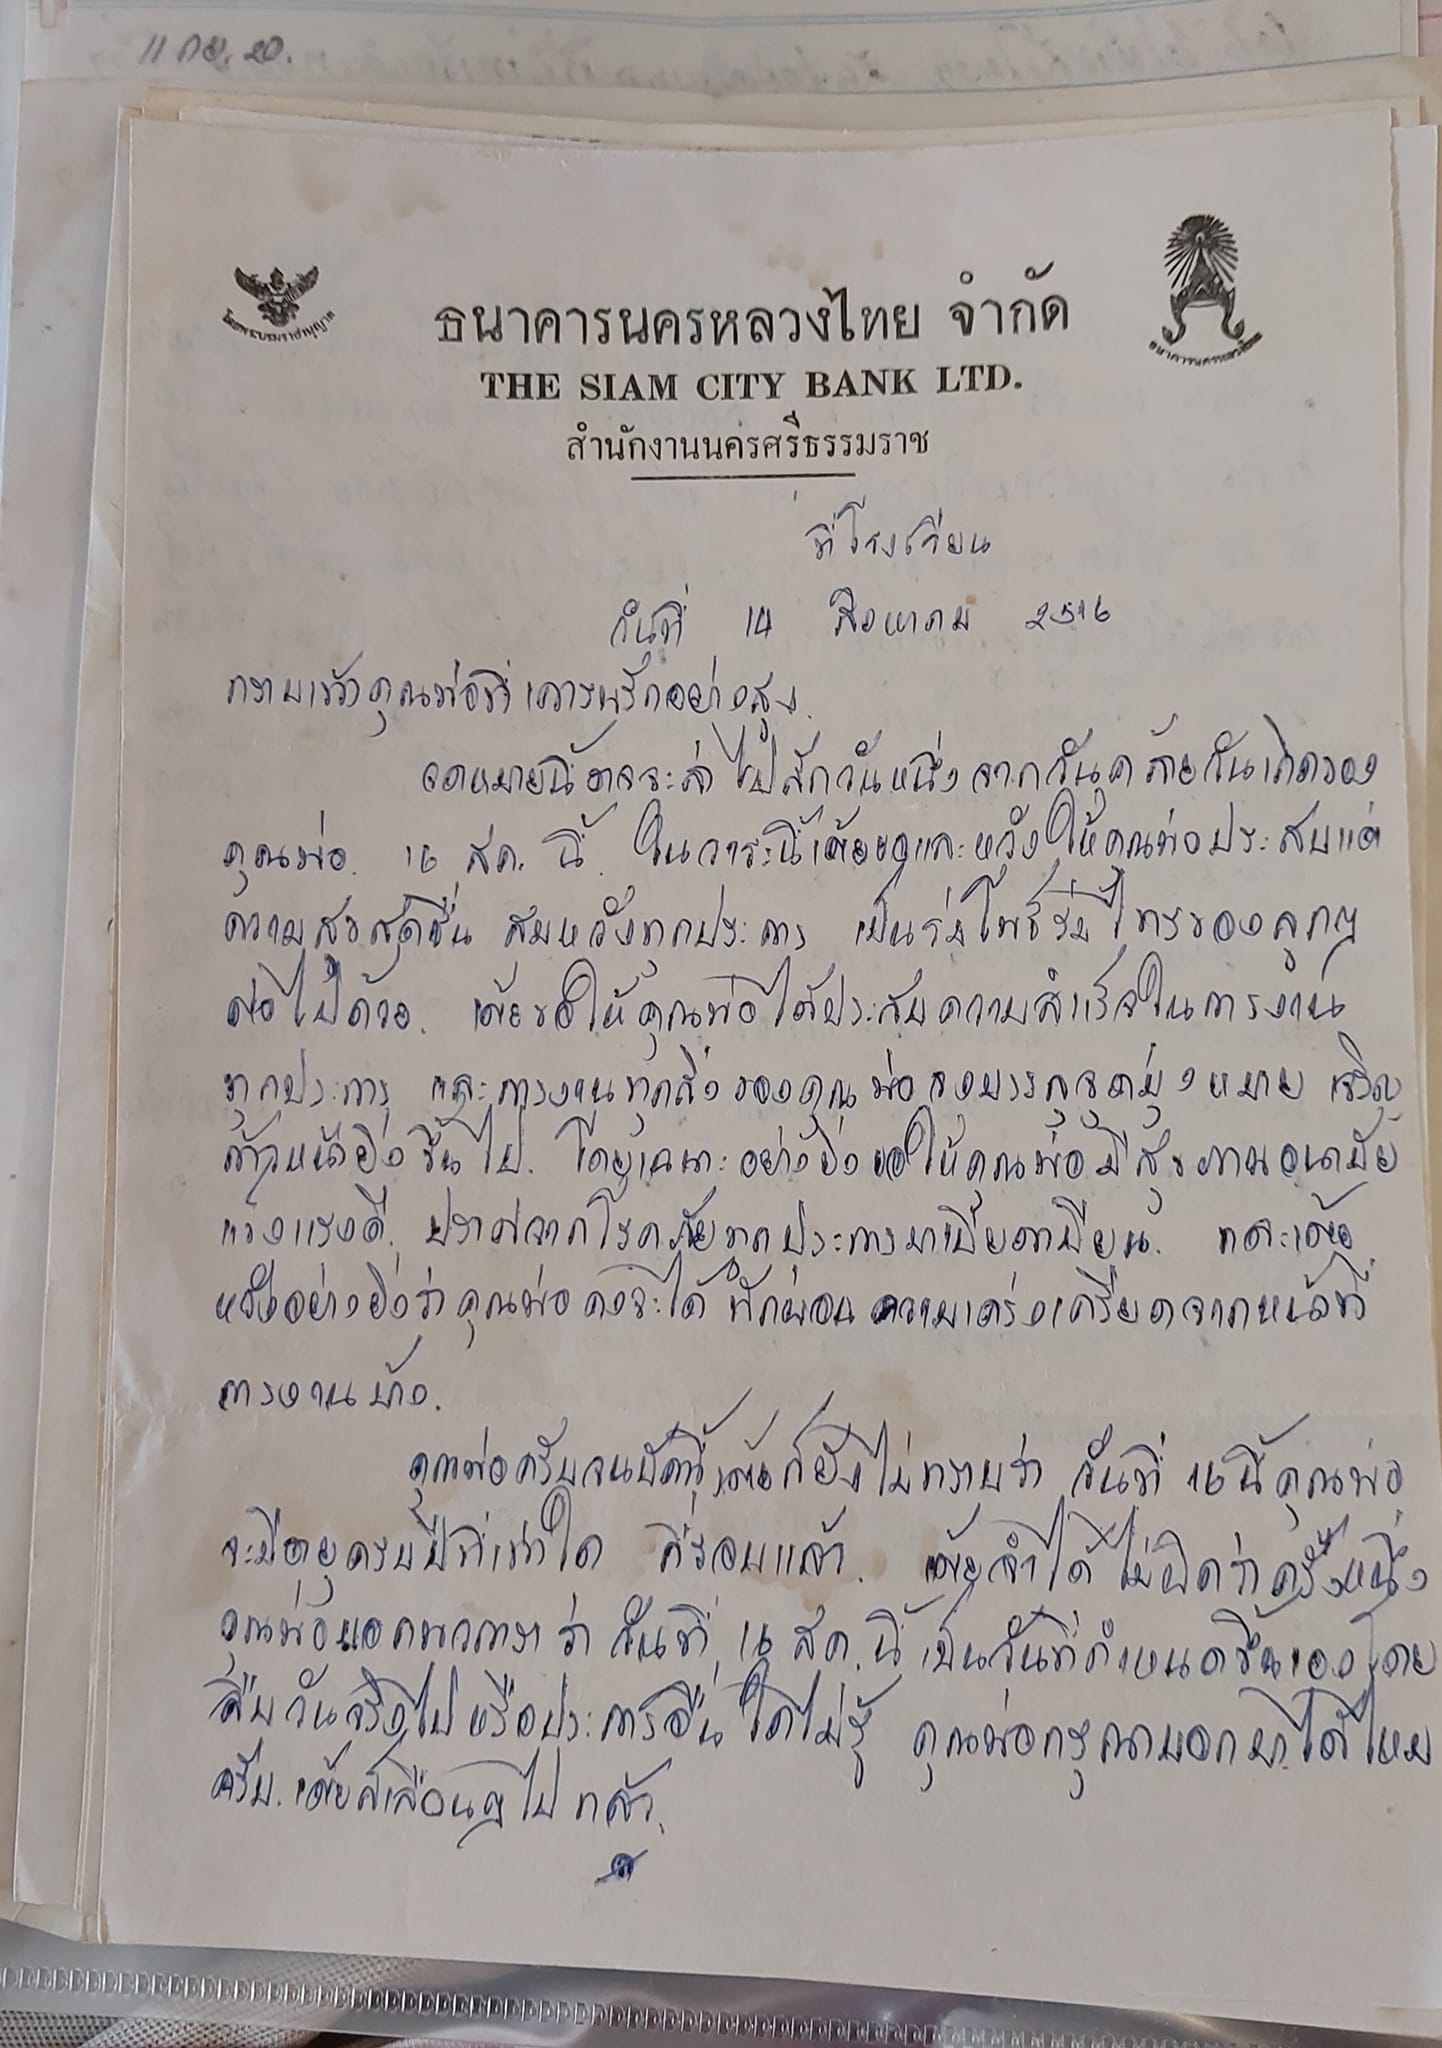 11 กย. 20.
ธนาคารนครหลวงไทย จำกัด
THE SIAM CITY BANK LTD.
สำนักงานนครศรีธรรมราช
โดยพระบรมราชานุญาต
ธนาคารนครหลวงไทย
ที่โรงเรียน
วันที่ 14 สิงหาคม 2516
กราบเท้าคุณพ่อที่เคารพรักอย่างสูง.
จดหมายนี้อาจจะล่าไปสักวันหนึ่งจากวันคล้ายวันเกิดของ
คุณพ่อ. 16 สค. นี้. ในวาระนี้เต้ยขอและหวังให้คุณพ่อประสบแต่
ความสุขสดชื่น สมหวังทุกประการ เป็นร่มโพธิ์ร่มไทรของลูกๆ
ต่อไปด้วย. เต้ยขอให้คุณพ่อได้ประสบความสำเร็จในการงาน
ทุกประการ และการงานทุกสิ่งของคุณพ่อจงบรรลุจุดมุ่งหมาย เจริญ
ก้าวหน้ายิ่งขึ้นไป. โดยเฉพาะอย่างยิ่งขอให้คุณพ่อมีสุขภาพอนามัย
แข็งแรงดี. ปราศจากโรคภัยทุกประการมาเบียดเบียน. และเต้ย
หวังอย่างยิ่งว่าคุณพ่อคงจะได้พักผ่อนความเคร่งเครียดจากหน้าที่
การงานบ้าง.
คุณพ่อครับจนบัดนี้เต้ยก็ยังไม่ทราบว่า วันที่ 16 นี้คุณพ่อ
จะมีอายุครบปีที่เท่าใด กี่รอบแล้ว. เต้ยจำได้ไม่ผิดว่าครั้งหนึ่ง
คุณพ่อบอกพวกเราว่า วันที่ 16 สค. นี้เป็นวันที่กำหนดขึ้นเองโดย
ลืมวันจริงไปหรือประการอื่นใดไม่รู้ คุณพ่อกรุณาบอกมาได้ไหม
ครับ. เต้ยก็เลือนๆไปแล้ว.